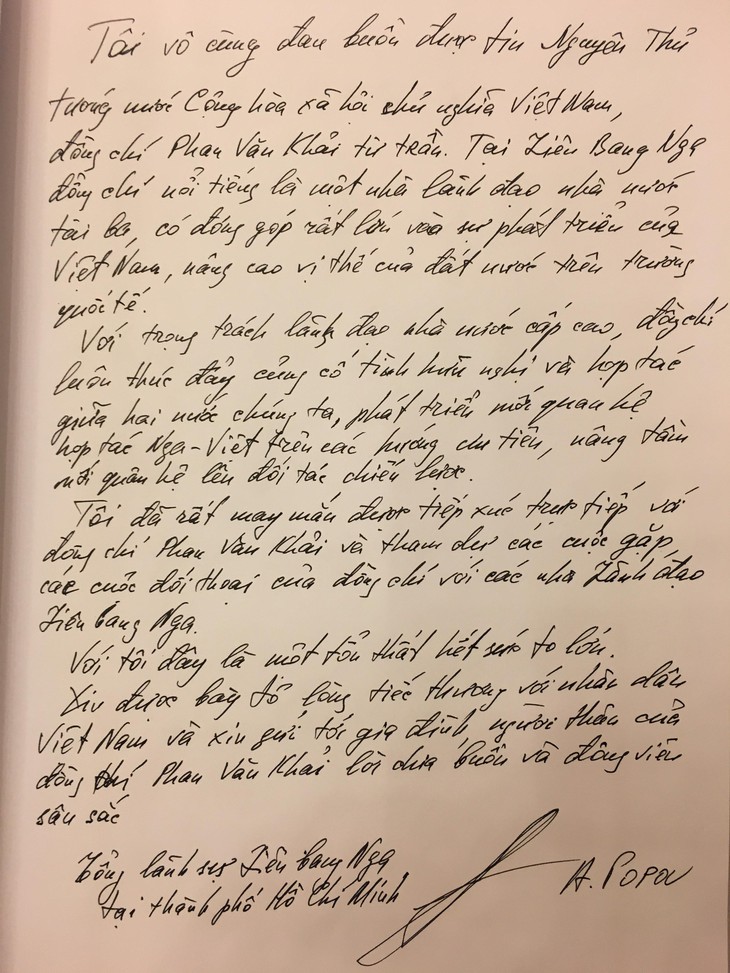 Tôi vô cùng đau buồn được tin Nguyên Thủ
tướng nước Cộng hòa xã hội chủ nghĩa Việt Nam,
đồng chí Phan Văn Khải từ trần. Tại Liên Bang Nga
đồng chí nổi tiếng là một nhà lãnh đạo nhà nước
tài ba, có đóng góp rất lớn vào sự phát triển của
Việt Nam, nâng cao vị thế của đất nước trên trường
quốc tế.
Với trọng trách lãnh đạo nhà nước cấp cao, đồng chí
luôn thúc đẩy củng cố tình hữu nghị và hợp tác
giữa hai nước chúng ta, phát triển mối quan hệ
hợp tác Nga-Việt trên các hướng ưu tiên, nâng tầm
mối quan hệ lên đối tác chiến lược.
Tôi đã rất may mắn được tiếp xúc trực tiếp với
đồng chí Phan Văn Khải và tham dự các cuộc gặp,
các cuộc đối thoại của đồng chí với các nhà Lãnh đạo
Liên bang Nga.
Với tôi đây là một tổn thất hết sức to lớn.
Xin được bày tỏ lòng tiếc thương với nhân dân
Việt Nam và xin gửi tới gia đình, người thân của
đồng chí Phan Văn Khải lời chia buồn và động viên
sâu sắc
Tổng lãnh sự Liên bang Nga
tại thành phố Hồ Chí Minh
A. POPOV